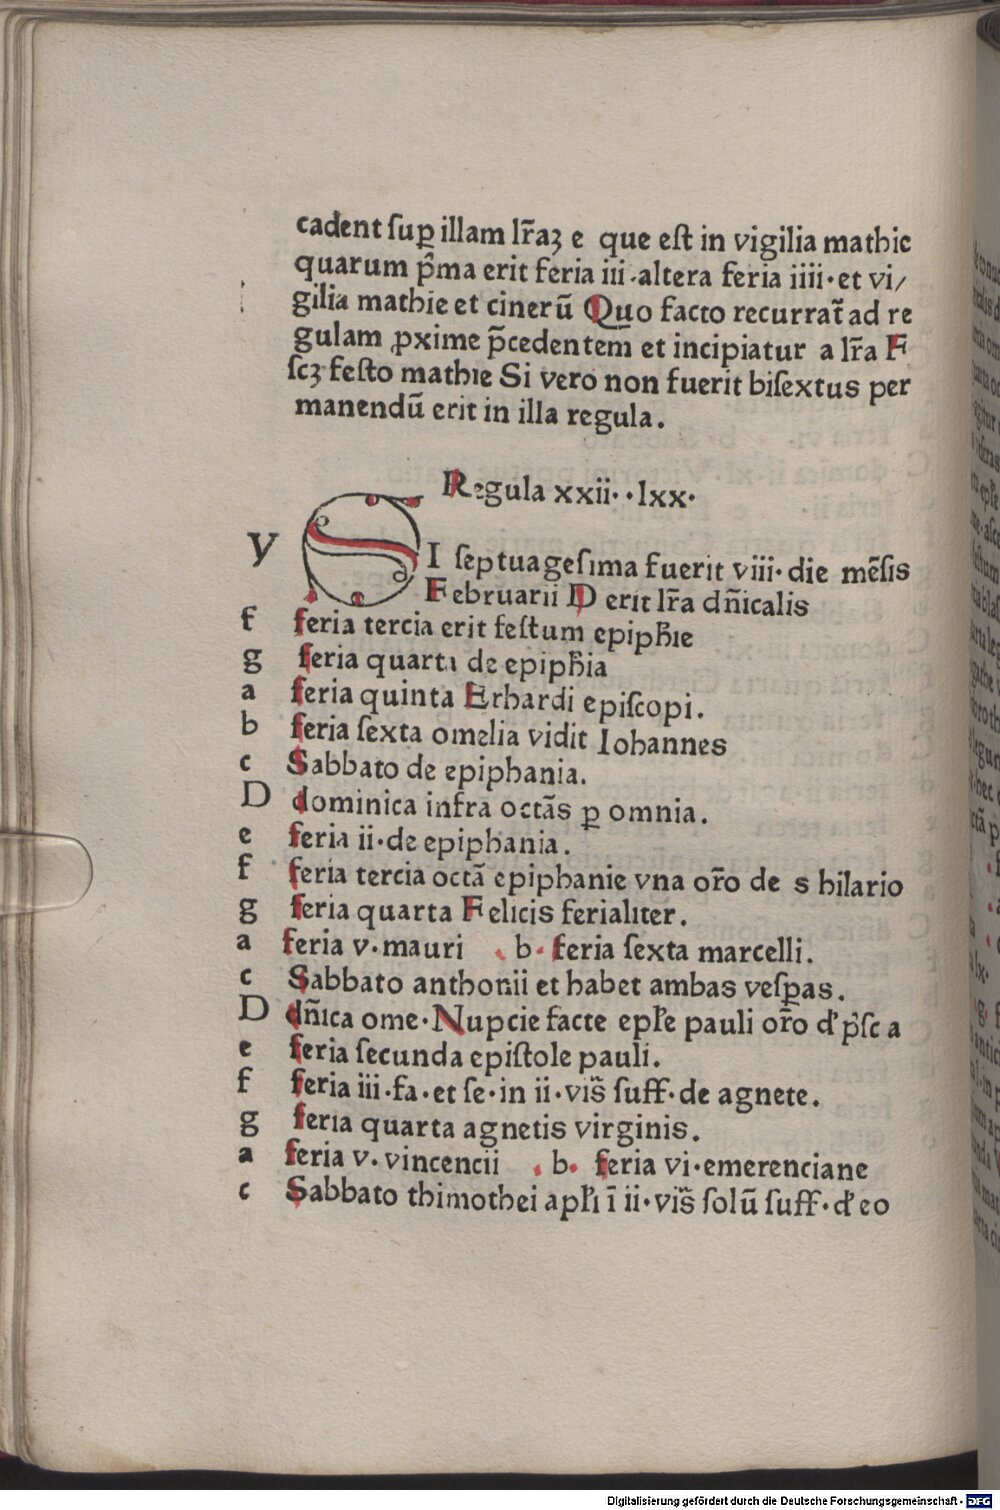 cadent ſup̲ illam lr̃aꝫ e que eſt in vigilia mathie
quarum p̃ma erit feria iii·altera feria iiii·et vi/
gilia mathie et cinerũ Quo facto recurrat̃ ad re
gulam ꝓxime p̃cedentem et incipiatur a lr̃a F
ſcꝫ feſto mathie Si vero non fuerit biſextus per
manendũ erit in illa regula.
Regula xxii··lxx·
y SI ſeptuageſima fuerit viii·die mẽſis
Februarii D erit lr̃a dñicalis
f feria tercia erit feſtum epiph̃ie
g feria quarta de epiph̃ia
a feria quinta Erhardi epiſcopi.
b feria ſexta omelia vidit Iohannes
c Sabbato de epiphania.
D dominica infra octãs ꝑ omnia.
e feria ii·de epiphania.
f feria tercia octã epiphanie vna or̃o de s hilario
g feria quarta Felicis ferialiter.
a feria v·mauri b·feria ſexta marcelli.
c Sabbato anthonii et habet ambas veſꝑas.
D dñica ome·Nupcie facte epl̃e pauli or̃o d' p̃ſc a
e feria ſecunda epiſtole pauli.
f feria iii·fa·et ſe·in ii·viſ̃ ſuff·de agnete.
g feria quarta agnetis virginis.
a feria v·vincencii ·b·feria vi·emerenciane
c Sabbato thimothei apl̃i ĩ ii·viſ̃ ſolũ ſuff·d' eo
Digitalisierung gefördert durch die Deutsche Forschungsgemeinschaft - DFG